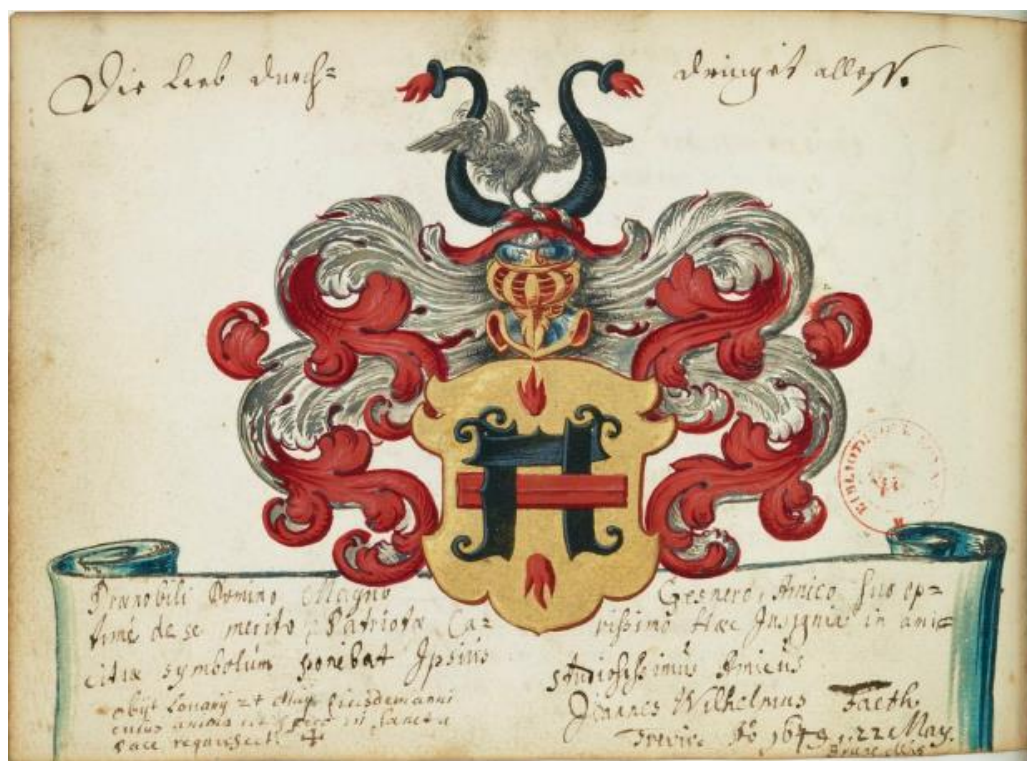 Die Lieb durch= dringet alless.
Prænobili Domino Magno Gesnero, Amico suo op=
timè de se merito, Patriotæ Ca= rissimo Hæc Insignia in ami=
citiæ symbolum ponebat Ipsius
studiosissimus Amicus
Joannes Wilhelmus Faeth
Trevir. Ao 1649. 22 May.
Bruxellis
obijt Lovanij 24 May eiusdem anni
cuius anima ut in sancta
pace requiescat.
BIBLIOT